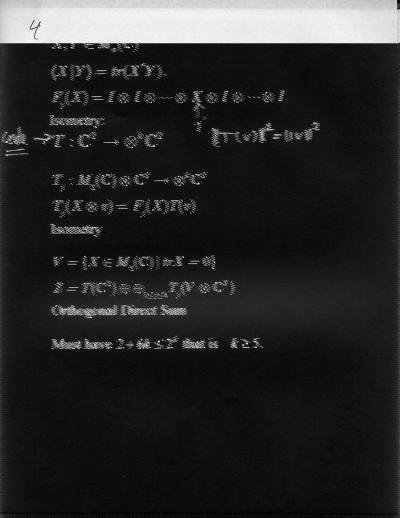 4
X, Y ∈ M₂(C)
⟨X|Y⟩ = tr(X*Y).
F_j(X) = I ⊗ I ⊗ ⋯ ⊗ X ⊗ I ⊗ ⋯ ⊗ I
Isometry:
Code → T : C² → ⊗ᵏC² ‖T(v)‖² = ‖v‖²
T_j : M₂(C) ⊗ C² → ⊗ᵏC²
T_j(X ⊗ v) = F_j(X)T(v)
Isometry
V = {X ∈ M₂(C) | trX = 0}
Z = T(C²) ⊕ ⊕ T_j(V ⊗ C²)
Orthogonal Direct Sum
Must have 2 + 6k ≤ 2ᵏ that is k ≥ 5.